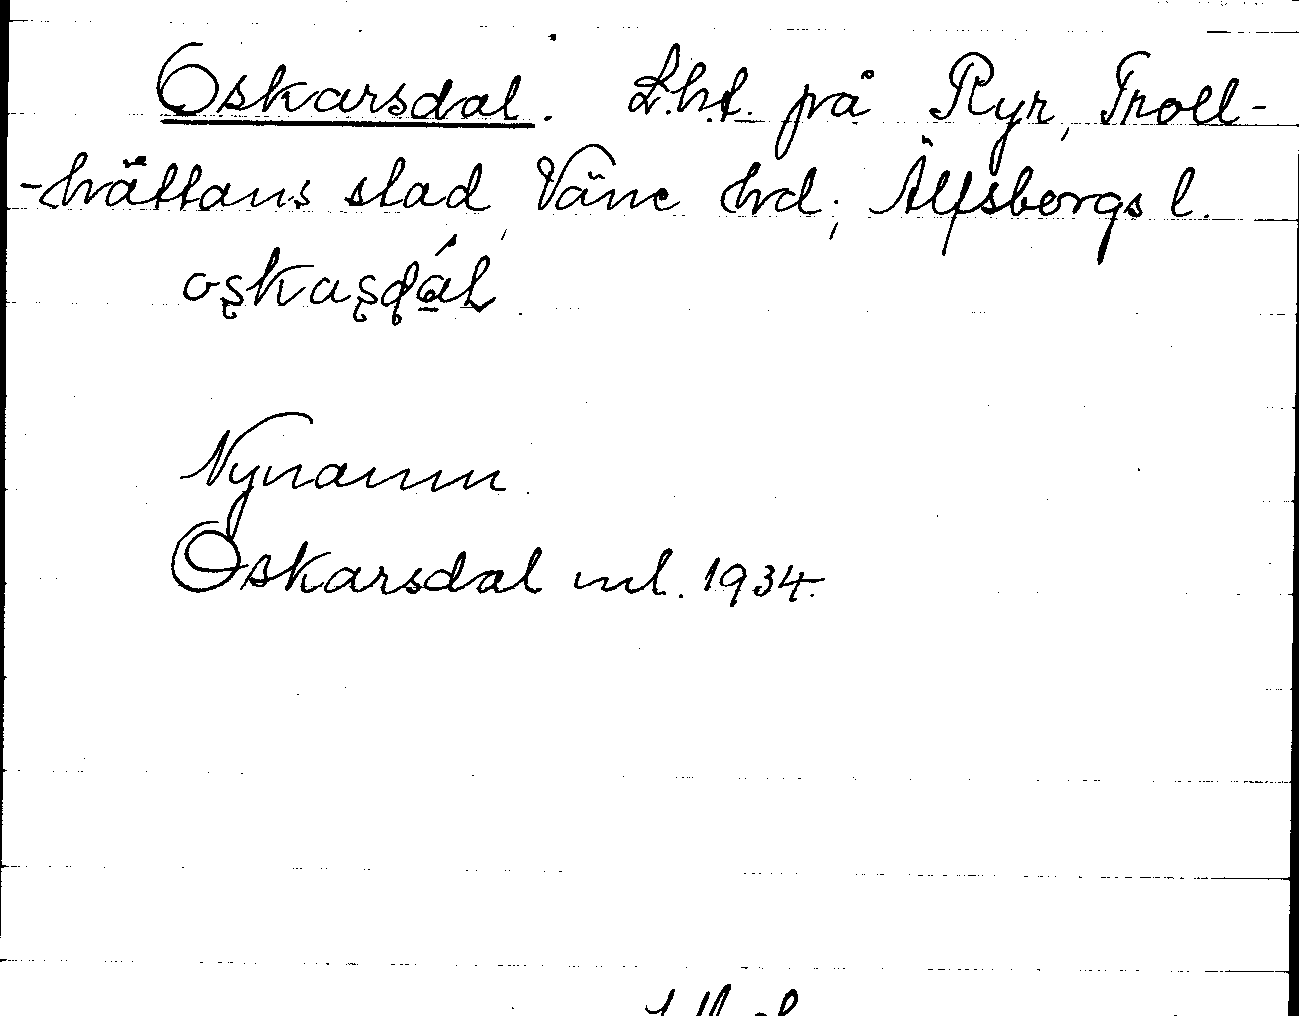 Oskarsdal. Lht. på Ryr, Troll-
-hättans stad, Väne hd; Älfsborgs l.
oʂkaʂɖáL
Nynamn.
Oskarsdal ml. 1934.